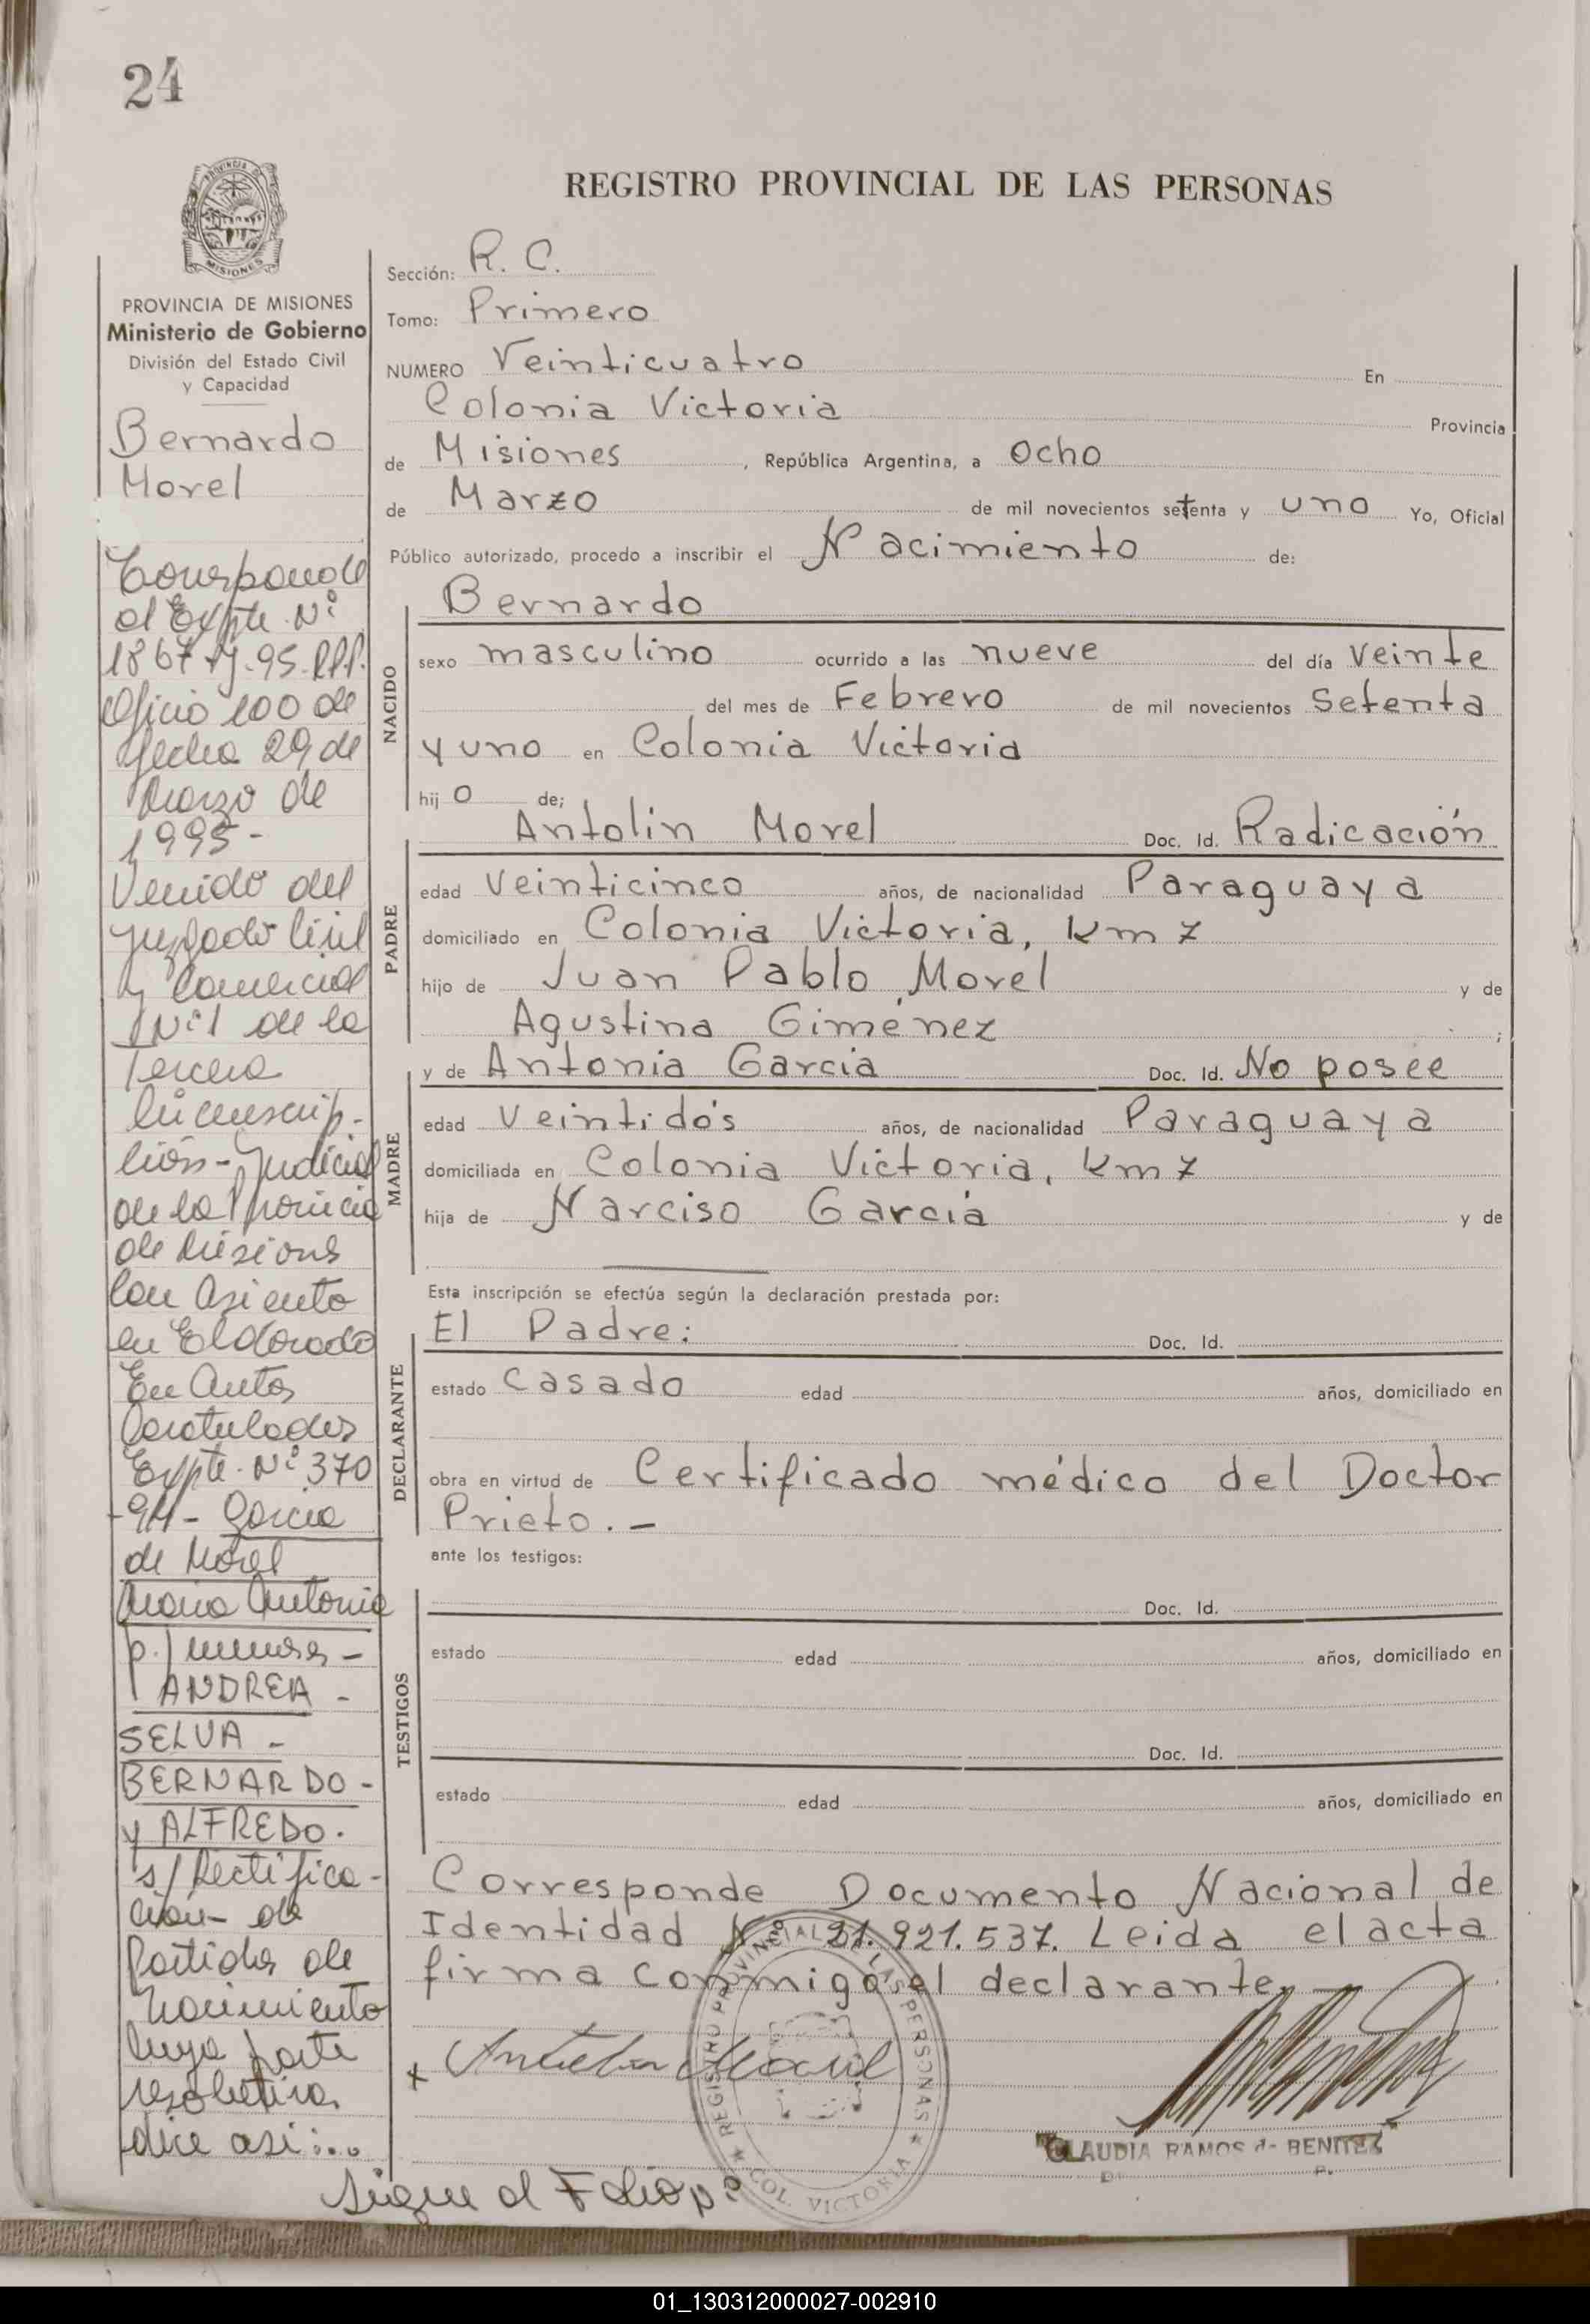 24
PROVINCIA DE
MISIONES
REGISTRO PROVINCIAL DE LAS PERSONAS
PROVINCIA DE MISIONES
Ministerio de Gobierno
División del Estado Civil
y Capacidad
Bernardo
Morel
Corresponde
al Expte. Nº
1867
Oficio 100 de
fecha 29 de
Marzo de
1995-
Venido del
Juzgado Civil
y Comercial
Nº1 de la
Tercera
Circunscrip-
ción-Judicial
de la Provincia
de Misiones
Con Asiento
en Eldorado
En Autos
Caratulados
Expte. Nº 370
-94- Garcia
de Morel
Maria Antonia
p./menores -
ANDREA -
SELVA -
BERNARDO -
y ALFREDO.
s/Rectifica-
ción de
Partida de
Nacimiento
Cuya parte
resolutiva
dice asi:...
Sigue al Folio
Sección: R. C.
Tomo: Primero
NUMERO Veinticuatro En
Colonia Victoria Provincia
de Misiones, República Argentina, a Ocho
de Marzo de mil novecientos setenta y uno Yo, Oficial
Público autorizado, procedo a inscribir el Nacimiento de:
NACIDO
Bernardo
sexo masculino ocurrido a las nueve del día Veinte
del mes de Febrero de mil novecientos Setenta
y uno en Colonia Victoria
hijo de;
PADRE
Antolin Morel Doc. Id. Radicación
edad Veinticinco años, de nacionalidad Paraguaya
domiciliado en Colonia Victoria, km 7
hijo de Juan Pablo Morel y de
Agustina Giménez ;
MADRE
y de Antonia Garcia Doc. Id. No posee
edad Veintidós años, de nacionalidad Paraguaya
domiciliada en Colonia Victoria, km 7
hija de Narciso Garcia y de
Esta inscripción se efectúa según la declaración prestada por:
DECLARANTE
El Padre: Doc. Id.
estado casado edad años, domiciliado en
obra en virtud de Certificado médico del Doctor
Prieto. -
ante los testigos:
TESTIGOS
Doc. Id.
estado edad años, domiciliado en
Doc. Id.
estado edad años, domiciliado en
Corresponde Documento Nacional de
Identidad Nº 21.921.537. Leida el acta
firma conmigo el declarante. -
x Antolin Morel
REGISTRO PROVINCIAL DE LAS PERSONAS
COL. VICTORIA
CLAUDIA RAMOS de BENITEZ
01_130312000027-002910